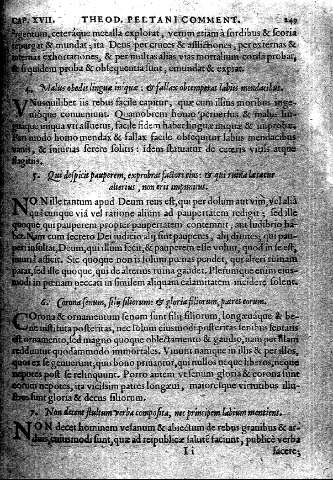 CAP. XVII. THEOD. PELTANI COMMENT. 249
argentum, cæteráque metalla explorat, verùm etiam à sordibus & scoria
purgat & mundat; ita Deus per cruces & afflictiones, per externas & in-
ternas exhortationes, & per multas alias vias mortalium corda probat,
& siquidem proba & obsequentia sunt, emundat & expiat.
4. Malus obedit linguæ iniquæ: & fallax obtemperat labiis mendacibus.
Vnusquilibet iis rebus facilè capitur, quæ cum illius moribus inge-
nióque conveniunt. Quamobrem homo perversus & malus
iniquæ assuetus, facilè fidem habet linguæ iniquæ & improbæ.
Pari modo homo mendax & fallax facilè obsequitur labiis mendacibus
vanis, & iniurias serere solitis: idem statuatur de cæteris vitiis atque
flagitiis.
5. Qui despicit pauperem, exprobrat factori eius: & qui ruina lætatur
alterius, non erit impunitus.
NON ille tantùm apud Deum reus est, qui per dolum aut vim, vel aliâ
quacunque via vel ratione alium ad paupertatem redigit; sed ille
quoque qui pauperem propter paupertatem contemnit, aut ludibrio ha-
bet. Nam cùm secreto Dei iudicio alij sint pauperes, alij divites; qui pau-
peri insultat, Deum, qui illum fecit, & pauperem esse voluit, quod in se est,
afficit. Sic quoque non is solùm pœnas pendet, qui alteri ruinam
parat, sed ille quoque, qui de alterius ruina gaudet. Plerunque enim eius-
modi in pœnam peccati in similem aliquam calamitatem incidere solent.
6. Corona senum, filij filiorum: & gloria filiorum, patres eorum.
Corona & ornamentum senum sunt filij filiorum, longæváque & be-
ne instituta posteritas, nec solùm eiusmodi posteritas senibus septatis
est ornamento, sed magno quoque oblectamento & gaudio, nam per illam
redduntur quodammodo immortales. Vivunt namque in illis & per illos,
quos ex se genuerunt, quo bono privantur, qui nullos neque liberos, neque
nepotes post se relinquunt. Porro autem ut senum gloria & corona sunt
eorum nepotes, ita vicissim patres longævi, maiorésque virtutibus illu-
stres sunt gloria & decus filiorum.
7. Non decent stultum verba composita, nec principem labium mentiens.
NON decet hominem vesanum & abiectum de rebus gravibus & ar-
duis, cuiusmodi sunt, quæ ad reipublicæ salutem faciunt, publicè verba
I i facere;